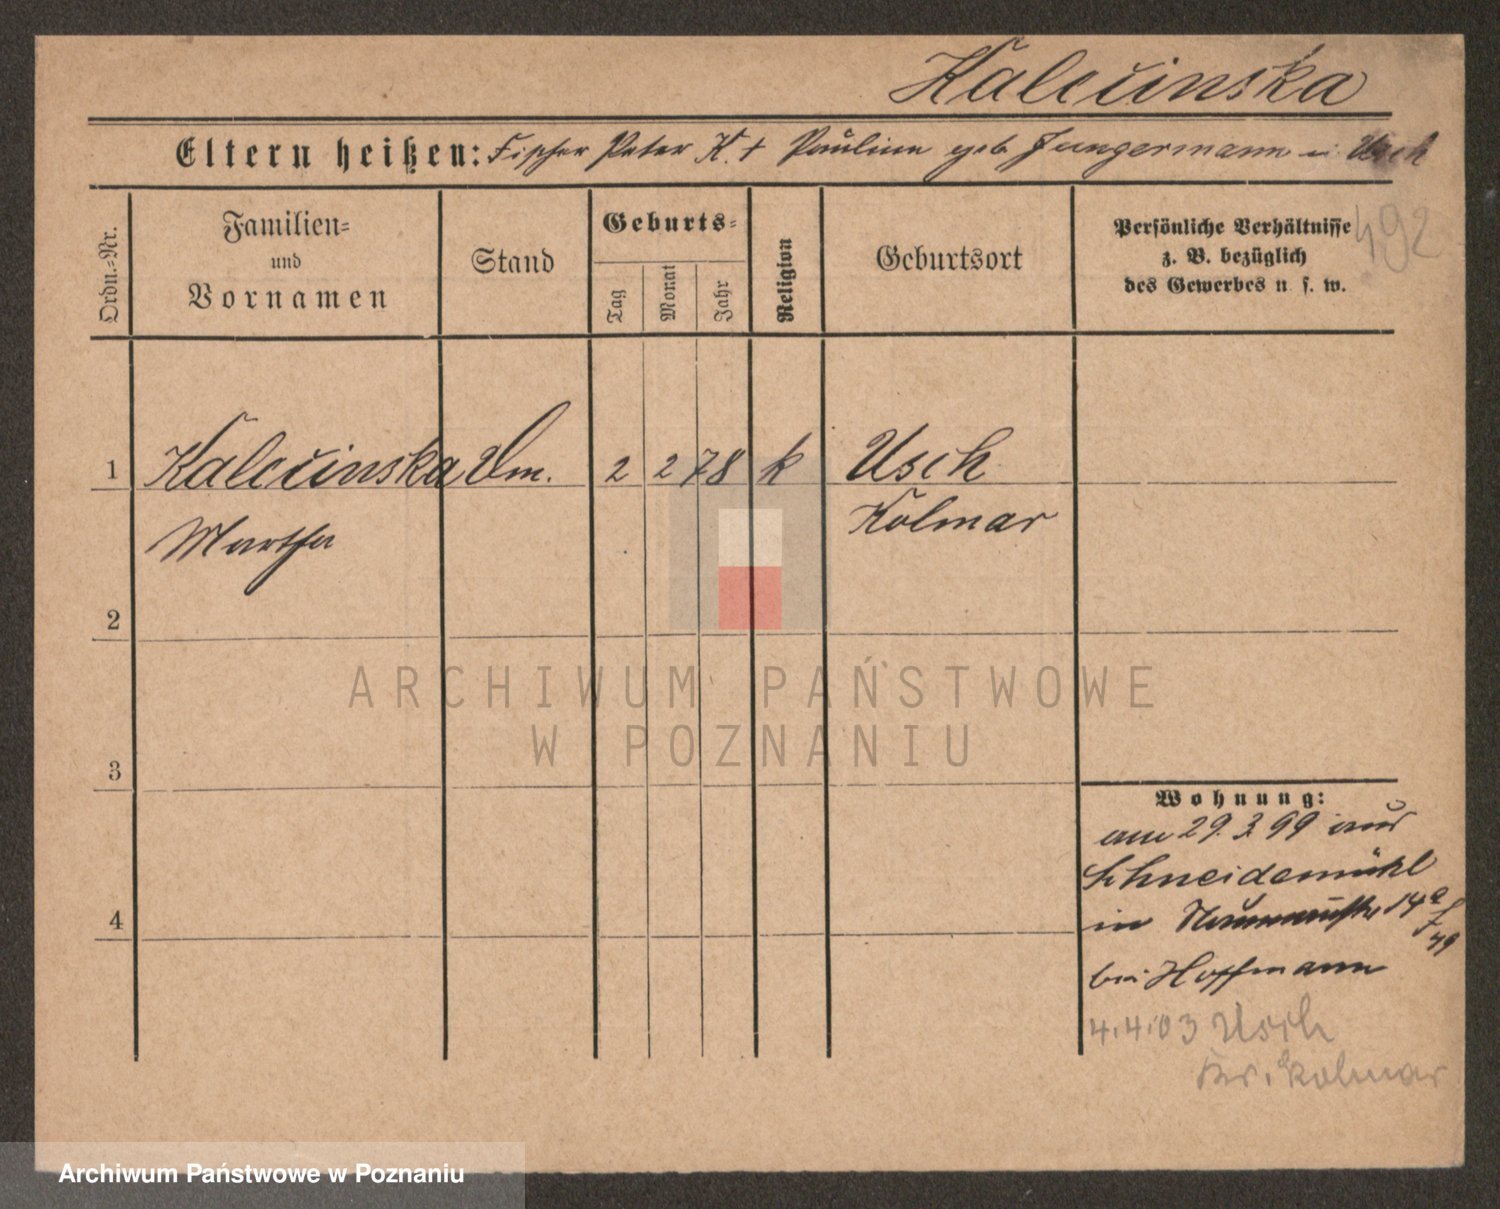 Kalečinska
Eltern heißen: Fischer Peter K. + Pauline geb Jungermann in Usch
492
Ordn.-Nr.
Familien-
und
Vornamen
Stand
Geburts-
Tag
Monat
Jahr
Religion
Geburtsort
Persönliche Verhältnisse
z. B. bezüglich
des Gewerbes u. s. w.
1 Kalečinska 2 2 78 k Usch
Martha Kolmar
2
3
4
ARCHIWUM PAŃSTWOWE
W POZNANIU
Wohnung:
am 29.3.99 aus
Schneidemühl
in 14
bei Hoffmann
4.4.03 Usch
Kr. Kolmar
Archiwum Państwowe w Poznaniu